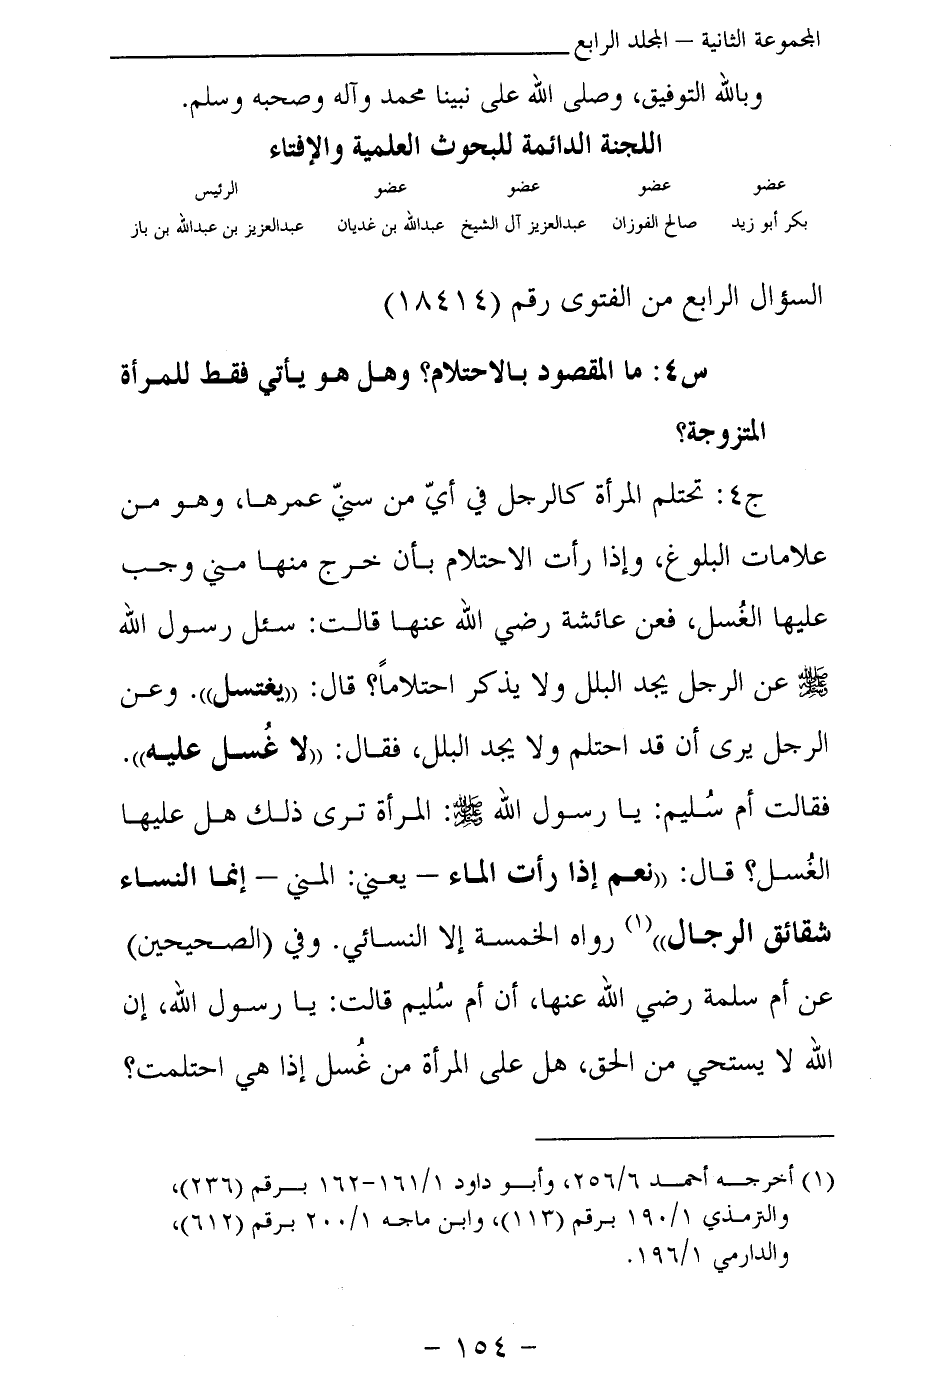 المجموعة الثانية – المجلد الرابع
وبالله التوفيق، وصلى الله على نبينا محمد وآله وصحبه وسلم.
اللجنة الدائمة للبحوث العلمية والإفتاء
عضو عضو عضو عضو الرئيس
بكر أبو زيد صالح الفوزان عبدالعزيز آل الشيخ عبدالله بن غديان عبدالعزيز بن عبدالله بن باز
السؤال الرابع من الفتوى رقم (١٨٤١٤)
س٤: ما المقصود بالاحتلام؟ وهل هو يأتي فقط للمرأة
المتزوجة؟
ج٤: تحتلم المرأة كالرجل في أيّ من سنيّ عمرها، وهو من
علامات البلوغ، وإذا رأت الاحتلام بأن خرج منها مني وجب
عليها الغُسل، فعن عائشة رضي الله عنها قالت: سئل رسول الله
ﷺ عن الرجل يجد البلل ولا يذكر احتلاماً؟ قال: ((يغتسل)). وعن
الرجل يرى أن قد احتلم ولا يجد البلل، فقال: ((لا غُسل عليه)).
فقالت أم سُليم: يا رسول الله ﷺ: المرأة ترى ذلك هل عليها
الغُسل؟ قال: ((نعم إذا رأت الماء – يعني: المني – إنما النساء
شقائق الرجال))(١) رواه الخمسة إلا النسائي. وفي (الصحيحين)
عن أم سلمة رضي الله عنها، أن أم سُليم قالت: يا رسول الله، إن
الله لا يستحي من الحق، هل على المرأة من غُسل إذا هي احتلمت؟
(١) أخرجه أحمد ٢٥٦/٦، وأبو داود ١٦١/١-١٦٢ برقم (٢٣٦)،
والترمذي ١٩٠/١ برقم (١١٣)، وابن ماجه ٢٠٠/١ برقم (٦١٢)،
والدارمي ١٩٦/١.
– ١٥٤ –